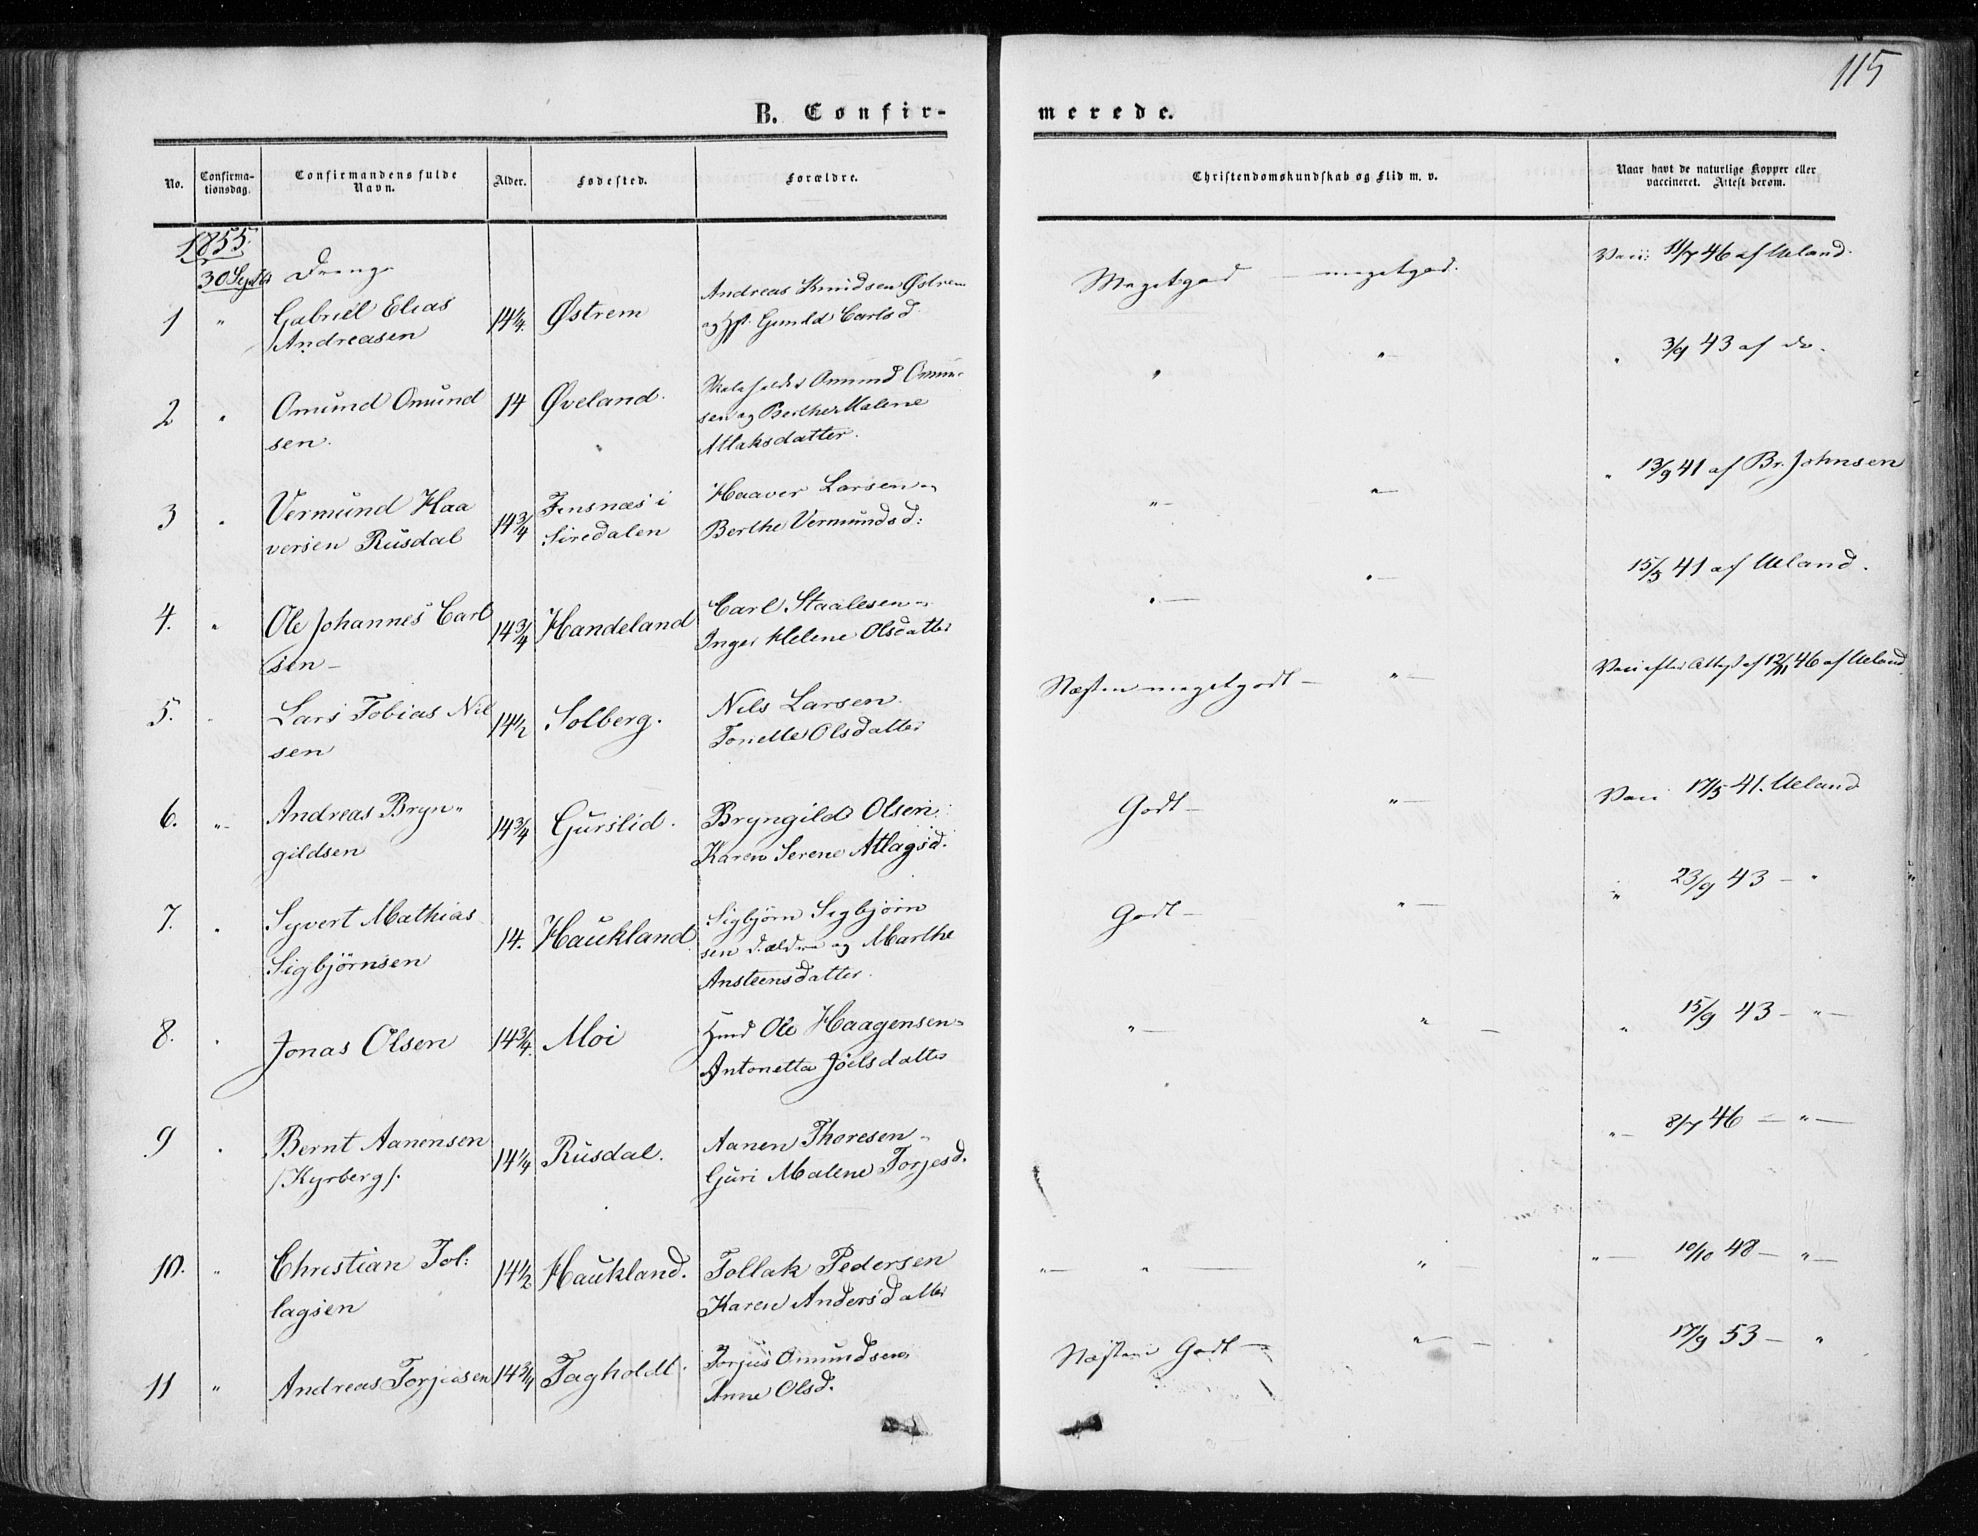 115
B. Confir-
merede.
No.
Confirma-
tionsdag.
Confirmandens fulde
Navn.
Alder.
Fødested.
Forældre.
Christendomskundskab og Flid m. v.
Naar havt de naturlige Kopper eller
vaccineret. Attest derom.
1855.
30 Septbr
Drenge
1 " Gabriel Elias
Andreasen
14¼. Østrem
Andreas Knudsen Østrem
og Gunild Carlsd.
Megetgod — megetgod.
Vacc: 11/7 46 af Ueland.
2 " Omund Omund
sen.
14 Øveland.
Omund Omun-
sen og Berthe Malene
Atlaksdatter.
" "—
" 3/9 43 af do.
3 " Vermund Haa
versen Rusdal
14¾ Fensnæs i
Siredalen
Haaver Larsen "
Berthe Vermundsd:
"— "—
" 13/9 41 af Br. Johnsen
4. " Ole Johannes Carl
sen—
14¾ Handeland
Carl Staalesen "
Inger Helene Olsdatter
"— "—
15/5 41 af Ueland.
5. " Lars Tobias Niel
sen
14½ Solberg.
Nils Larsen.
Tonette Olsdatter
Næsten megetgodt — "—
Vacc efter Attest af 12/11 46 af Ueland
6. "— Andreas Bryn"
gildsen
14¾ Gurslid.
Bryngild Olsen.
Karen Serene Atlagsd.
Godt — "—
Vacc 17/5 41. Ueland
7. " Syvert Mathias
Sigbjørnsen
14. Haukland
Sigbjørn Sigbjørn
sen d. ældre og Marthe
Ansteensdatter.
Godt — "—
" 23/9 43 — "
8. " Jonas Olsen
14¾. Moi
Ole Haagensen "
Antonetta Joelsdatter
"— " —
" 15/9 43 — "—
9 " Bernt Aanensen
/Kyrberg/.
14¼ Rusdal.
Aanen Thoresen "
Guri Malene Torjesd.
"— 8/7 46 — "—
10. " Christian Tol:
lagsen
14½ Haukland.
Tollak Pedersen
Karen Andersdatter
"— " — " —
"— 10/10 48 — "—
11 " Andreas Torjusen
14¾ Tagholdt.
Torjus Omundsen
Anne Olsd.
Næsten Godt — "— —
17/9 53 — "